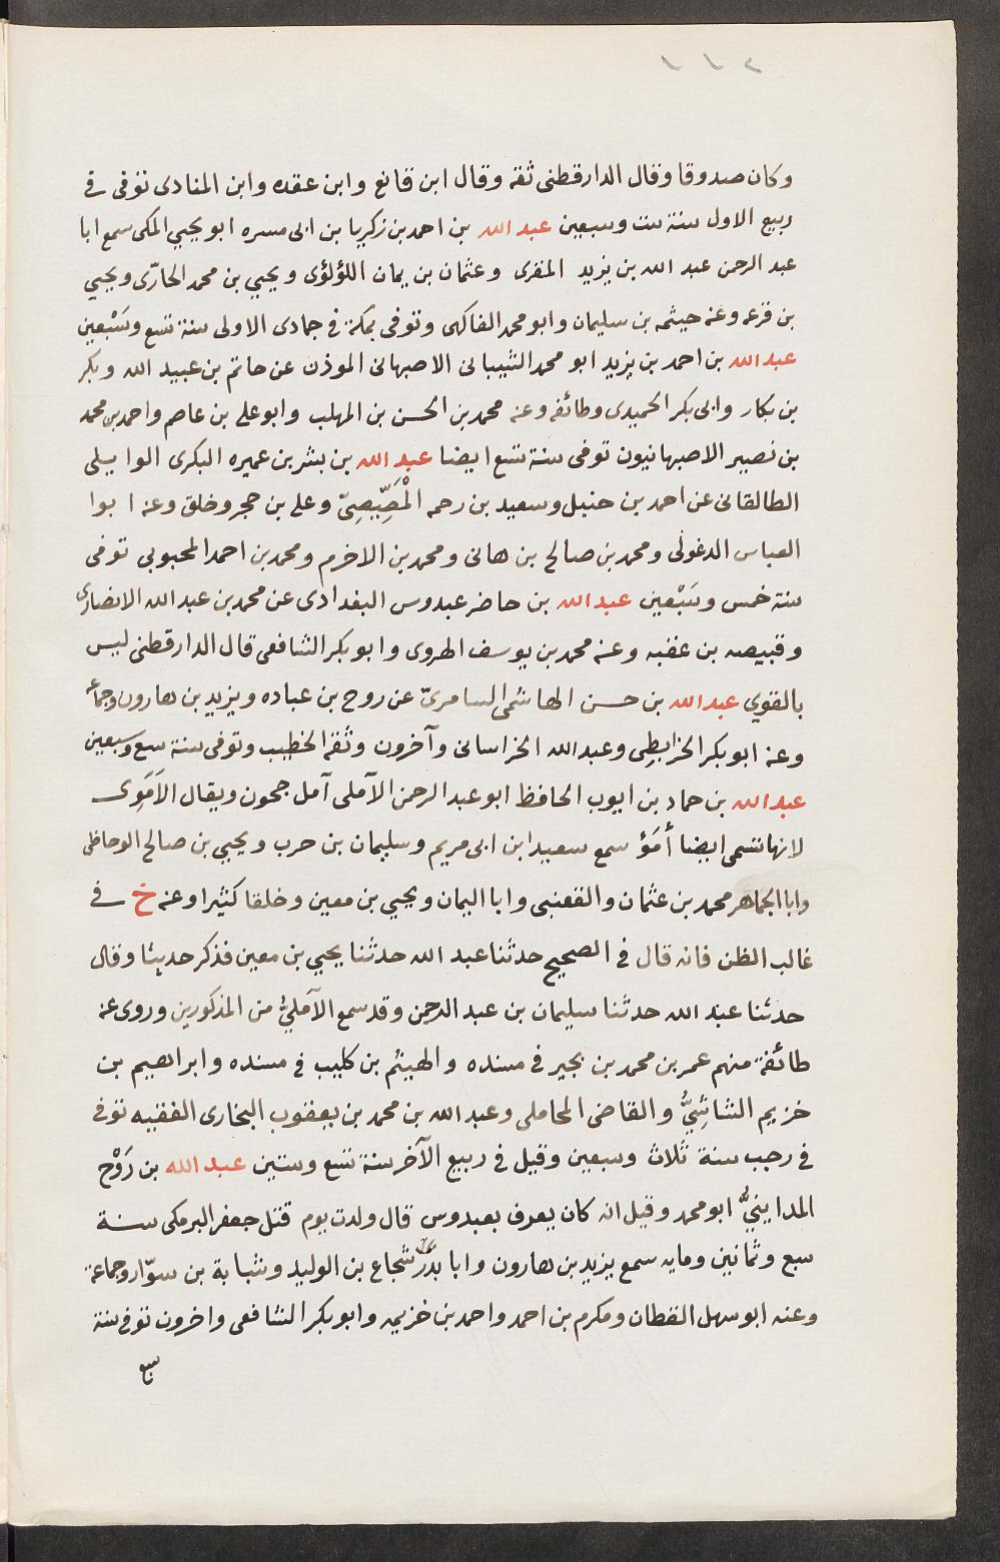 ١١٢
وكان صدوقا وقال الدارقطنى ثقه وقال ابن قانع وابن عقده وابن المنادى توفى فى
ربيع الاول سنة ست وسبعين عبد الله بن احمد بن زكريا بن ابى مسره ابو يحيي المكى سمع ابا
عبد الرحمن عبد الله بن يزيد المقرى وعثمان بن يمان اللؤلؤى ويحيي بن محمد الحارّى ويحيي
بن قزعه وعنه خيثمه بن سليمان وابو محمد الفاكهى وتوفى بمكة فى جمادى الاولى سنة تسع وسَبْعين
عبد الله بن احمد بن يزيد ابو محمد الشيبانى الاصبهانى الموذن عن حاتم بن عبيد الله وبكر
بن بكار وابى بكر الحميدى وطائفه وعنه محمد بن الحسن بن المهلب وابو على بن عاصم واحمد بن محمد
بن نصير الاصبهانيون توفى سنة تسع ايضا عبد الله بن بشر بن عميره البكرى الوايلى
الطالقانى عن احمد بن حنبل وسعيد بن رحمه المْصَِّيصِىّ وعلى بن حجر وخلق وعنه ابوا
العباس الدغولى ومحمد بن صالح بن هانى ومحمد بن الاخرم ومحمد بن احمد المحبوبى توفى
سنة خمس وسَبْعين عبد الله بن حاضر عبدوس البغدادى عن محمد بن عبد الله الانصارى
وقبيصه بن عقبه وعنه محمد بن يوسف الهروى وابو بكر الشافعى قال الدارقطنى ليس
بالقوي عبد الله بن حسن الهاشمى السامرىّ عن روح بن عباده ويزيد بن هارون وجماعه
وعنه ابو بكر الخرايطِى وعبد الله الخراسانى وآخرون وثقه الخطيب وتوفى سنة سبع وسبعين
عبد الله بن حماد بن ايوب الحافظ ابو عبد الرحمن الآملى آمل جحون ويقال الاَمَوِى
لانها تسمى ايضا أَمَوُ سمع سعيد ابن ابى مريم وسليمان بن حرب ويحيي بن صالح الوحاظى
وابا الجماهر محمد بن عثمان والقعنبى وابا اليمان ويحيي بن معين وخلقا كثيرا وعنه خ فى
غالب الظن فانه قال فى الصحيح حدثنا عبد الله حدثنا يحيي بن معين فذكر حديثا وقال
حدثنا عبد الله حدثنا سليمان بن عبد الرحمن وقد سمع الآملىُّ من المذكورين وروى عنه
طائفة منهم عمر بن محمد بن بجير فى مسنده والهيثم بن كليب فى مسنده وابراهيم بن
خزيم الشاشِىُّ والقاضى المحاملى وعبد الله بن محمد بن يعقوب البخارى الفقيه توفى
فى رجب سنة ثلاث وسبعين وقيل فى ربيع الآخر سنة تسع وستين عبد الله بن رَوْح
المداينىُّ ابو محمد وقيل انه كان يعرف بعبدوس قال ولدت يوم قتل جعفر البرمكى سنة
سبع وثمانين ومايه سمع يزيد بن هارون وابا بدر شجاع بن الوليد وشبابة بن سوّار وجماعة
وعنه ابو سهل القطان ومكرم بن احمد واحمد بن خزيمه وابو بكر الشافعى واخرون توفى سنة
سبع